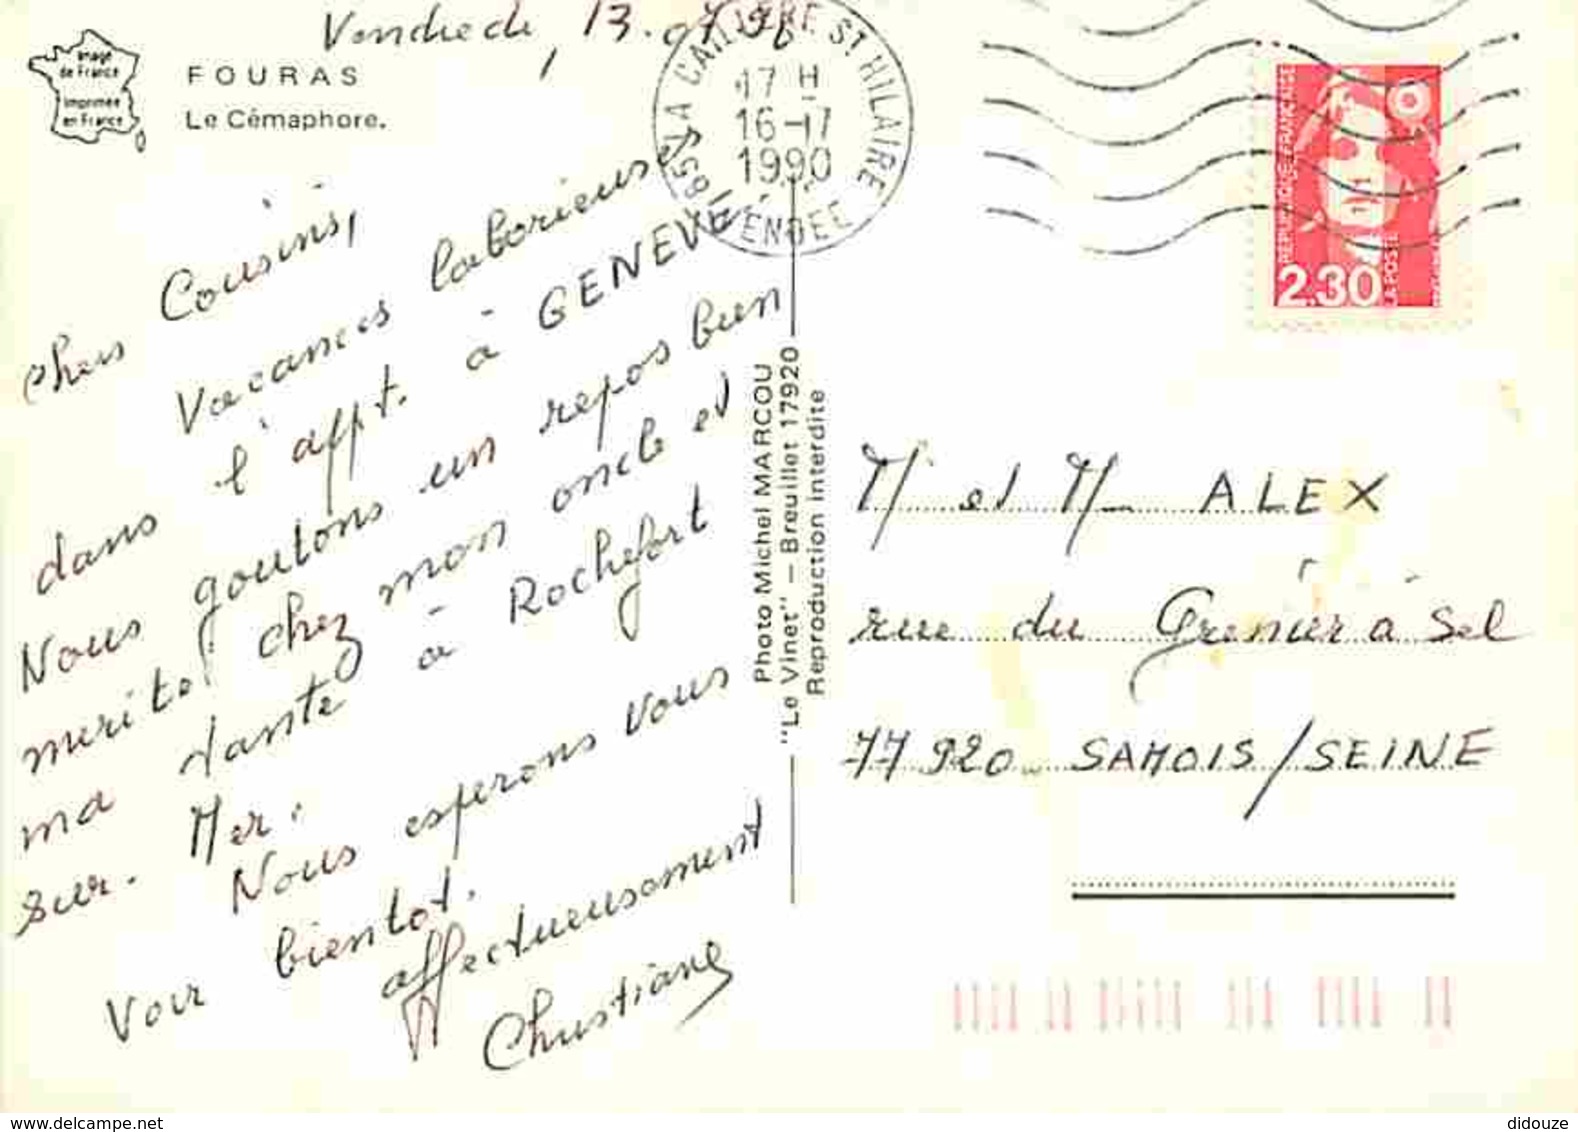 Vendredi, 13.07.90
Image
de France
Imprimée
en France
FOURAS
Le Cémaphore.
chers Cousins,
Vacances laborieuses
dans l'appt. à GENEVE.
Nous goutons un repos bien
merité chez mon oncle et
ma tante à Rochefort
sur. Mer.
Nous esperons vous
voir bientot.
affectueusement
Christiane
Photo Michel MARCOU
"Le Vinet" — Breuillet 17920
Reproduction interdite
ST HILAIRE
VENDEE
17 H
16-17
1990
REPUBLIQUE FRANÇAISE
2.30
LA POSTE
M et Mm ALEX
rue du Grenier à Sel
77920 SAMOIS/SEINE
delcampe.net
didouze